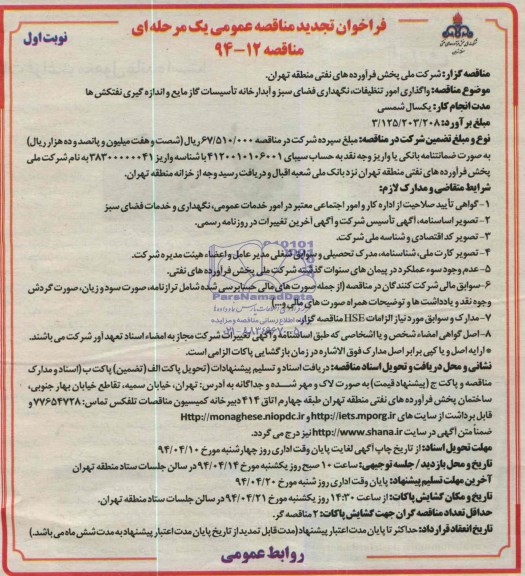 فراخوان تجدید مناقصه عمومی یک مرحله ای
مناقصه ۱۲-۹۴
نوبت اول
مناقصه گزار: شرکت ملی پخش فرآورده های نفتی منطقه تهران.
موضوع مناقصه: واگذاری امور تنظیفات، نگهداری فضای سبز و آبدارخانه تأسیسات گاز مایع و اندازه گیری نفتکش ها
مدت انجام کار: یکسال شمسی
مبلغ برآورد: ۳/۱۲۵/۲۰۳/۲۰۸
نوع و مبلغ تضمین شرکت در مناقصه: مبلغ سپرده شرکت در مناقصه ۶۷/۵۱۰/۰۰۰ ریال (شصت و هفت میلیون و پانصد و ده هزار ریال)
به صورت ضمانتنامه بانکی یا واریز وجه نقد به حساب سیبای ۴۱۲۰۰۱۰۱۰۶۰۰۱ با شناسه واریز ۳۸۳۰۰۰۰۰۰۴۱ به نام شرکت ملی
پخش فرآورده های نفتی منطقه تهران نزد بانک ملی شعبه اقبال و دریافت رسید وجه از خزانه منطقه تهران.
شرایط متقاضی و مدارک لازم:
۱- گواهی تأیید صلاحیت از اداره کار و امور اجتماعی معتبر در امور خدمات عمومی، نگهداری و خدمات فضای سبز
۲- تصویر اساسنامه، آگهی تأسیس شرکت و آگهی آخرین تغییرات در روزنامه رسمی.
۳- تصویر کد اقتصادی و شناسه ملی شرکت.
۴- تصویر کارت ملی، شناسنامه، مدرک تحصیلی و سوابق شغلی مدیر عامل و اعضاء هیئت مدیره شرکت.
۵- عدم وجود سوء عملکرد در پیمان های سنوات گذشته شرکت ملی پخش فرآورده های نفتی.
۶- سوابق مالی شرکت کنندگان در مناقصه (از جمله صورت های مالی حسابرسی شده شامل ترازنامه، صورت سود و زیان، صورت گردش
وجوه نقد و یادداشت ها و توضیحات همراه صورت های مالی و...)
۷- مدارک و سوابق مورد نیاز الزامات HSE مناقصه گزار.
۸- اصل گواهی امضاء شخص و یا اشخاصی که طبق اساسنامه و آگهی تغییرات شرکت مجاز به امضاء اسناد تعهد آور شرکت می باشند.
* ارایه اصل و یا کپی برابر اصل مدارک فوق الاشاره در زمان بازگشایی پاکات الزامی است.
نشانی و محل دریافت و تحویل اسناد مناقصه: دریافت اسناد و تسلیم پیشنهادات (تحویل پاکت الف (تضمین) پاکت ب (اسناد و مدارک
مناقصه و پاکت ج (پیشنهاد قیمت) به صورت لاک و مهر شده و جداگانه به آدرس: تهران، خیابان سمیه، تقاطع خیابان بهار جنوبی،
ساختمان پخش فرآورده های نفتی منطقه تهران طبقه چهارم اتاق ۴۱۴ دبیرخانه کمیسیون مناقصات تلفکس تماس: ۷۷۶۵۴۷۲۸ و
قابل برداشت از سایت های http://iets.mporg.ir و Http://monaghese.niopdc.ir
ضمناً متن آگهی در سایت http://www.shana.ir نیز درج می گردد.
مهلت تحویل اسناد: از تاریخ چاپ آگهی لغایت پایان وقت اداری روز چهارشنبه مورخ ۹۴/۰۴/۱۰
تاریخ و محل بازدید / جلسه توجیهی: ساعت ۱۰ صبح روز یکشنبه مورخ ۹۴/۰۴/۱۴ در سالن جلسات ستاد منطقه تهران
آخرین مهلت تسلیم پیشنهاد: پایان وقت اداری روز شنبه مورخ ۹۴/۰۴/۲۰
تاریخ و مکان گشایش پاکات: از ساعت ۱۴:۳۰ روز یکشنبه مورخ ۹۴/۰۴/۲۱ در سالن جلسات ستاد منطقه تهران.
حداقل تعداد مناقصه گران جهت گشایش پاکات: ۲ مناقصه گر.
تاریخ انعقاد قرارداد: حداکثر تا پایان مدت اعتبار پیشنهاد (مدت قابل تمدید از تاریخ پایان مدت اعتبار پیشنهاد به مدت شش ماه می باشد.)
روابط عمومی
ParsNamadData